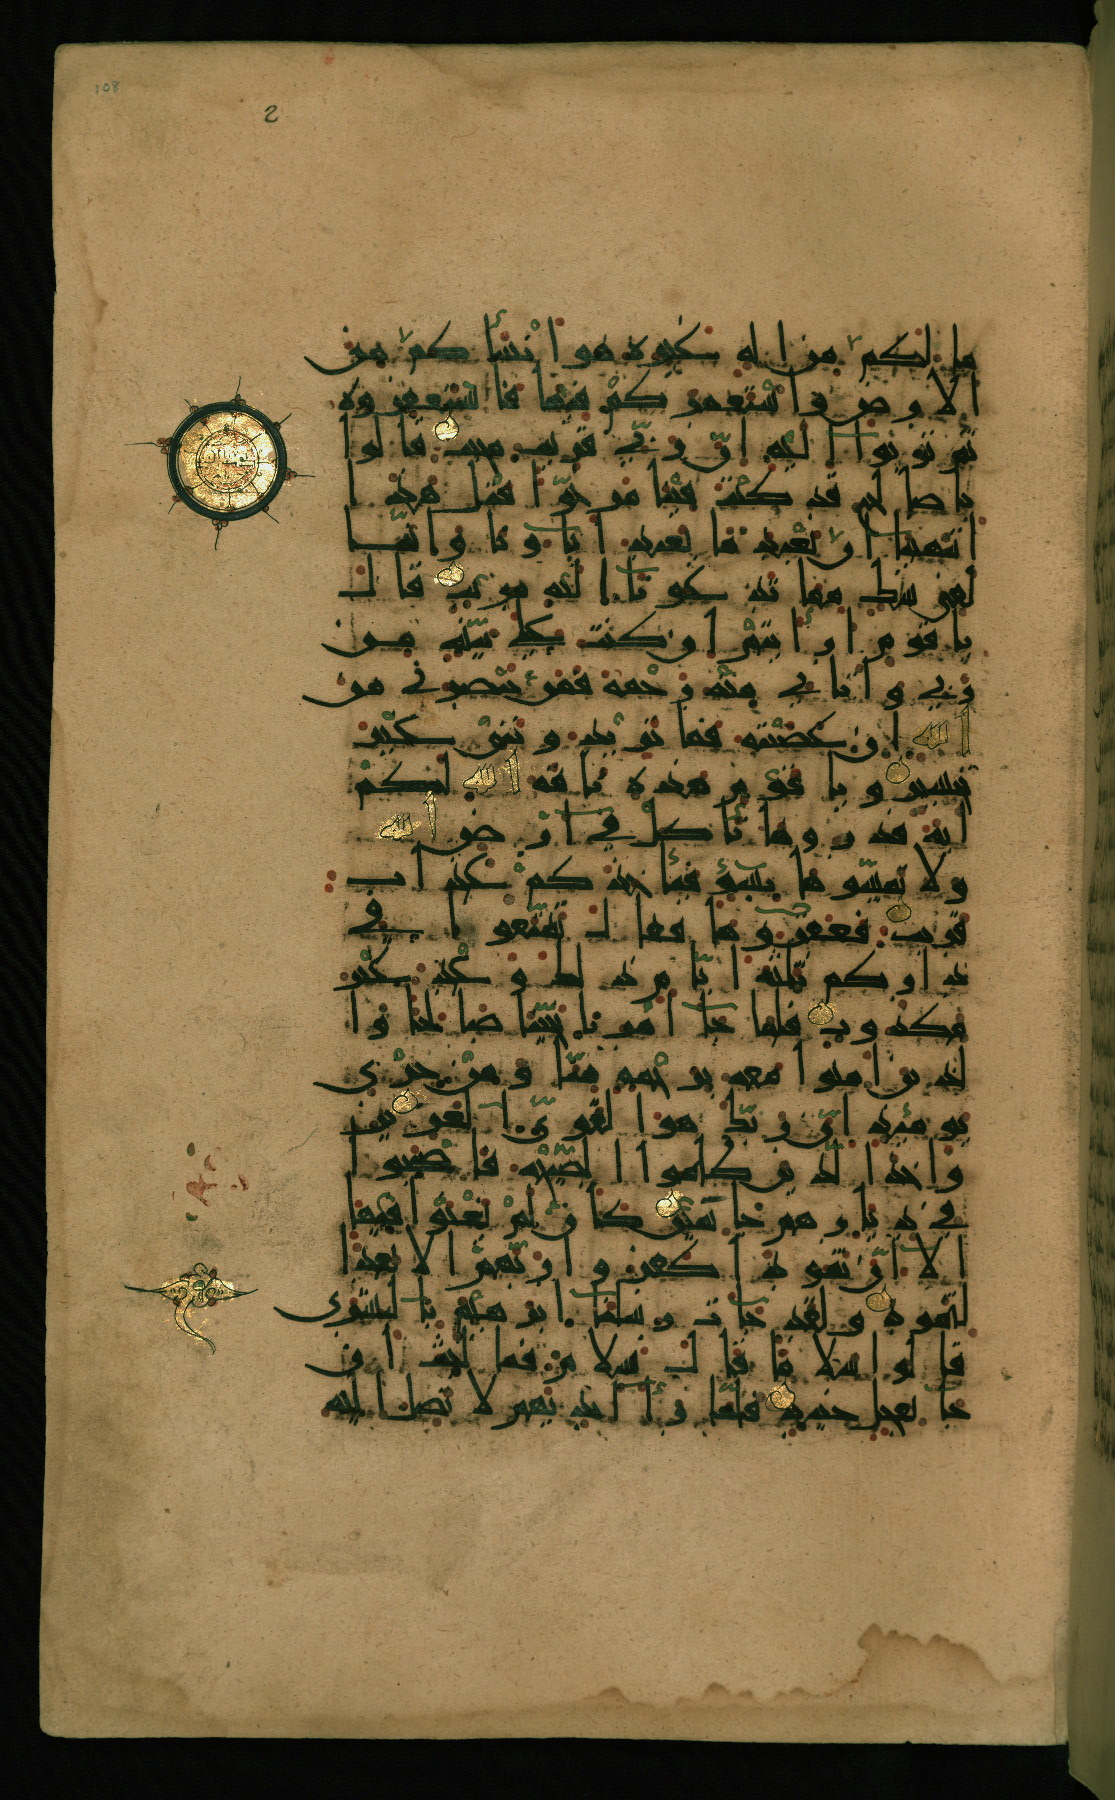 108
2
ما لكم من اله غيره هو انشأكم من
الارض واستعمركم فيها فاستغفروه
ثم توبوا اليه ان ربي قريب مجيب قالوا
يا صالح قد كنت فينا مرجوا قبل هذا ا
تنهينا ان نعبد ما يعبد اباونا واننا
لفي شك مما تدعونا اليه مريب قال
يا قوم ارأيتم ان كنت على بينة من
ربي واتاني منه رحمة فمن ينصرني من
الله ان عصيته فما تزيدونني غير
تخسير ويا قوم هذه ناقة الله لكم
اية فذروها تأكل في ارض الله
ولا تمسوها بسوء فيأخذكم عذاب
قريب فعقروها فقال تمتعوا في
داركم ثلثة ايام ذلك وعد غير
مكذوب فلما جا امرنا نجينا صالحا وا
لذين امنوا معه برحمة منا ومن خزي
يومئذ ان ربك هو القوي العزيز
واخذ الذين ظلموا الصيحة فاصبحوا
في ديارهم جاثمين كأن لم يغنوا فيها
الا ان ثمودا كفروا ربهم الا بعدا
لثمود ولقد جات رسلنا ابرهيم بالبشرى
قالوا سلاما قال سلام فما لبث ان
جا بعجل حنيذ فلما رأا ايديهم لا تصل اليه